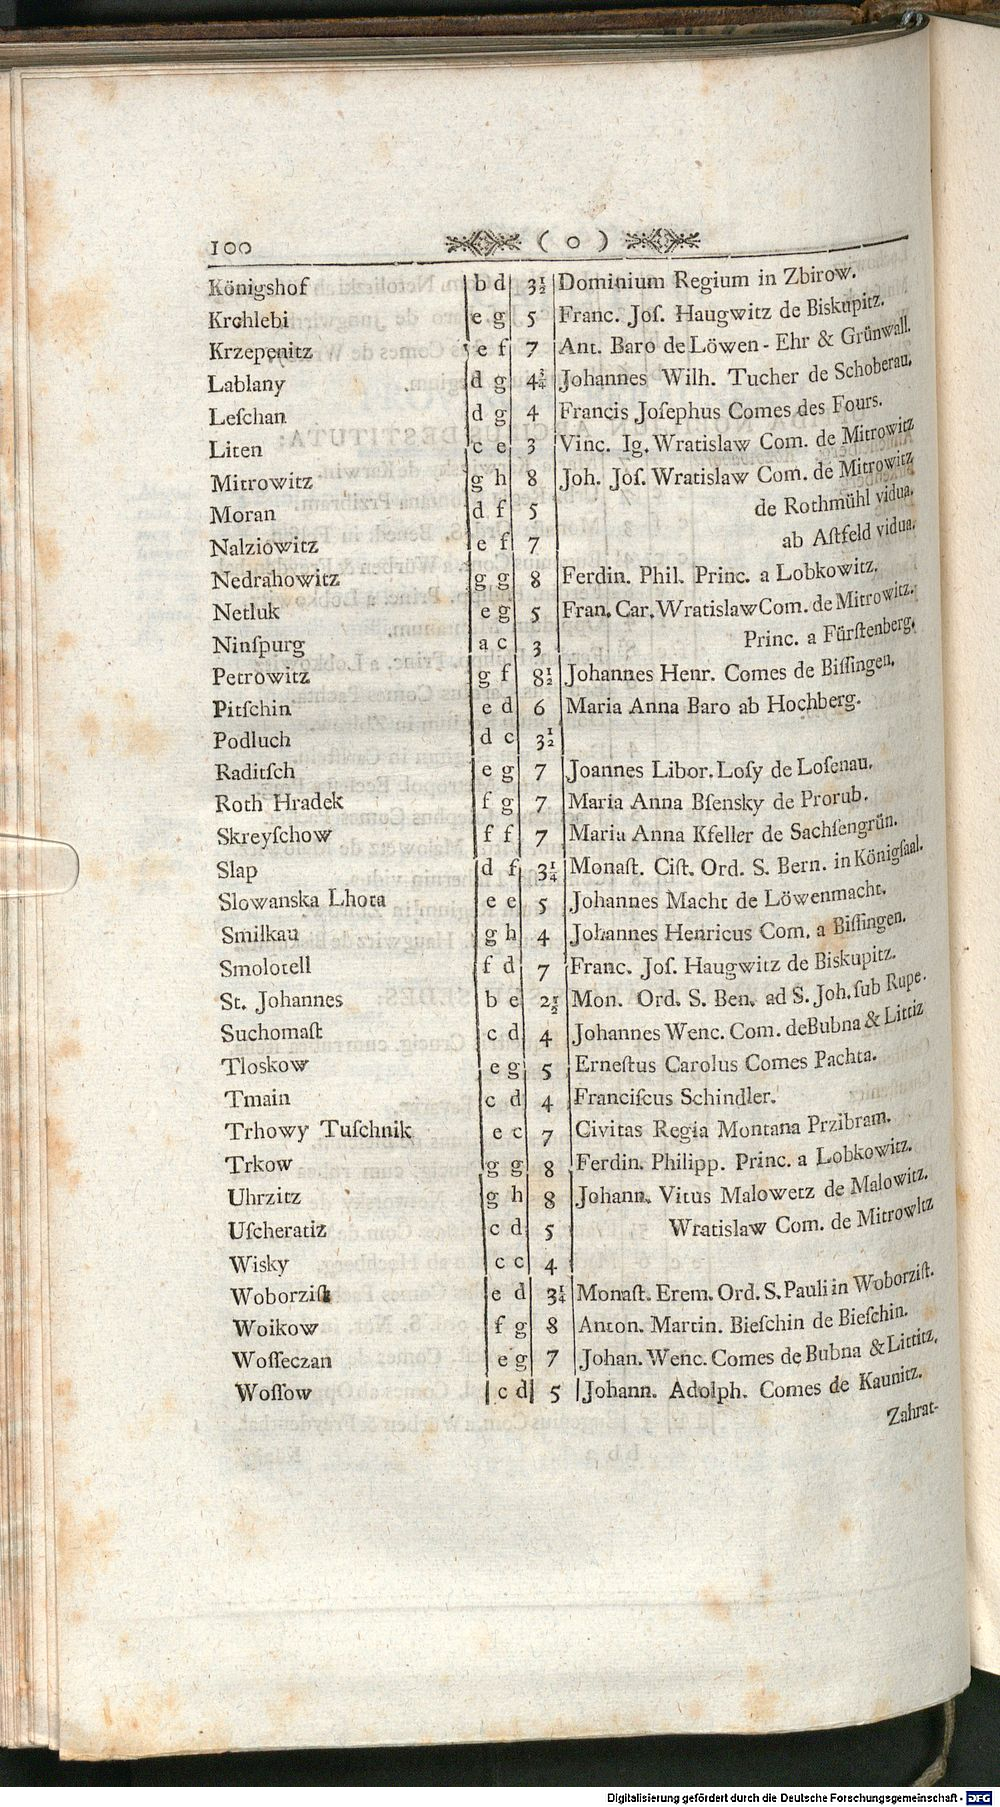 100 ( 0 )
Königshof b d 3½ Dominium Regium in Zbirow.
Krchlebi e g 5 Franc. Joſ. Haugwitz de Biskupitz.
Krzepenitz e f 7 Ant. Baro de Löwen-Ehr & Grünwall.
Lablany d g 4¼ Johannes Wilh. Tucher de Schoberau.
Leſchan d g 4 Francis Joſephus Comes des Fours.
Liten c e 3 Vinc. Ig. Wratislaw Com. de Mitrowitz
Mitrowitz g h 8 Joh. Joſ. Wratislaw Com. de Mitrowitz
Moran d f 5 de Rothmühl vidua.
Nalziowitz e f 7 ab Aſtfeld vidua.
Nedrahowitz g g 8 Ferdin. Phil. Princ. a Lobkowitz.
Netluk e g 5 Fran. Car. Wratislaw Com. de Mitrowitz.
Ninſpurg a c 3 Princ. a Fürſtenberg.
Petrowitz g f 8½ Johannes Henr. Comes de Biſſingen.
Pitſchin e d 6 Maria Anna Baro ab Hochberg.
Podluch d c 3½
Raditſch e g 7 Joannes Libor. Loſy de Loſenau.
Roth Hradek f g 7 Maria Anna Bſensky de Prorub.
Skreyſchow f f 7 Maria Anna Kfeller de Sachſengrün.
Slap d f 3¼ Monaſt. Ciſt. Ord. S. Bern. in Königſaal.
Slowanska Lhota e e 5 Johannes Macht de Löwenmacht.
Smilkau g h 4 Johannes Henricus Com. a Biſſingen.
Smolotell f d 7 Franc. Joſ. Haugwitz de Biskupitz.
St. Johannes b e 2½ Mon. Ord. S. Ben. ad S. Joh. ſub Rupe.
Suchomaſt c d 4 Johannes Wenc. Com. de Bubna & Littiz
Tloskow e g 5 Erneſtus Carolus Comes Pachta.
Tmain c d 4 Franciſcus Schindler.
Trhowy Tuſchnik e c 7 Civitas Regia Montana Przibram.
Trkow g g 8 Ferdin. Philipp. Princ. a Lobkowitz.
Uhrzitz g h 8 Johann. Vitus Malowetz de Malowitz.
Uſcheratiz c d 5 Wratislaw Com. de Mitrowitz
Wisky c c 4
Woborziſt e d 3¼ Monaſt. Erem. Ord. S. Pauli in Woborziſt.
Woikow f g 8 Anton. Martin. Bieſchin de Bieſchin.
Woſſeczan e g 7 Johan. Wenc. Comes de Bubna & Littitz.
Woſſow c d 5 Johann. Adolph. Comes de Kaunitz.
Zahrat-
Digitalisierung gefördert durch die Deutsche Forschungsgemeinschaft - DFG